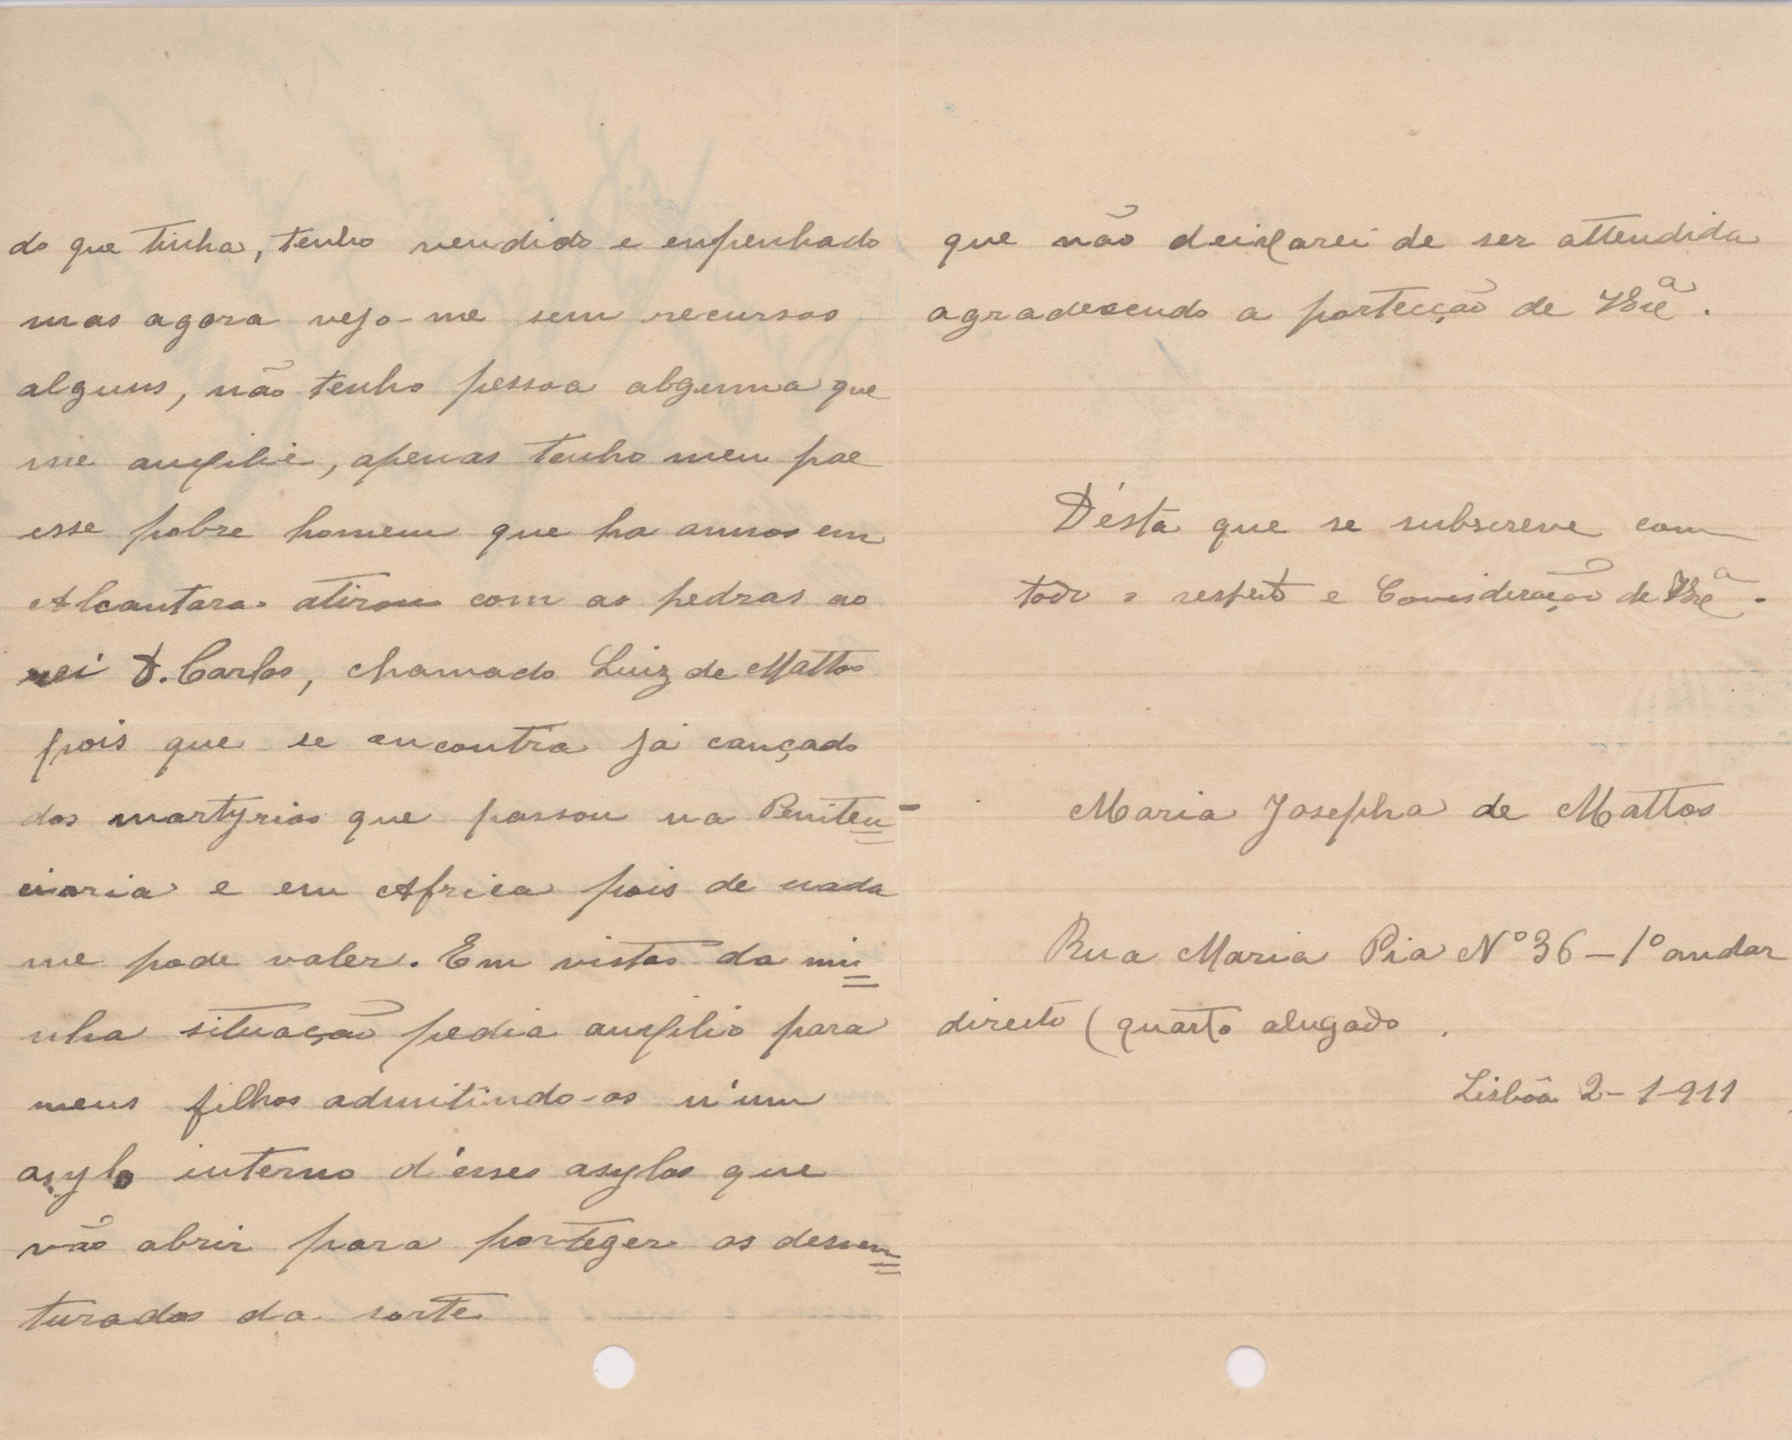 do que tinha, tenho vendido e enpenhado
mas agora vejo-me sem recursos
alguns, não tenho pessoa alguma que
me auxilie, apenas tenho meu pae
esse pobre homem que ha annos em
Alcantara atirou com as pedras ao
rei D. Carlos, chamado Luiz de Mattos
pois que se encontra já cançado
dos martyrios que passou na Peniten-
ciaria e em Africa pois de nada
me pode valer. Em vistas da mi=
nha situação pedia auxilio para
meus filhos admitindo-os n'um
asylo interno d'esses asylos que
vão abrir para porteger os desven=
turados da sorte
que não deixarei de ser attendida
agradecendo a portecção de Vª Exª.
D'ésta que se subscreve com
todo o respeito e Consideração de Vª Exª.
Maria Josepha de Mattos
Rua Maria Pia Nº 36 – 1º andar
direito (quarto alugado.
Lisbôa 2-1-911